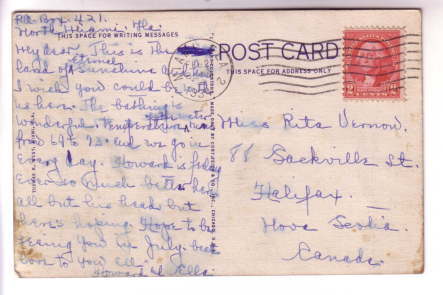 P.O. Box 421.
North Miami. Fla.
THIS SPACE FOR WRITING MESSAGES
My dear, This is the
eternal
land of Sunshine and
I wish you could be with
us here. The bathing is
wonderful temperature
the water
from 69 to 75 and we go in
every day. Howard is feeling
ever so much better here
all but his head but
here's hoping. Hope to be
seeing you in July. best
love to you all
Howard & Ella.
POST CARD
THIS SPACE FOR ADDRESS ONLY
MIAMI
1934
2 CENTS 2
Miss Rita Vernow.
88 Sackville St.
Halifax.
Nova Scotia.
Canada.